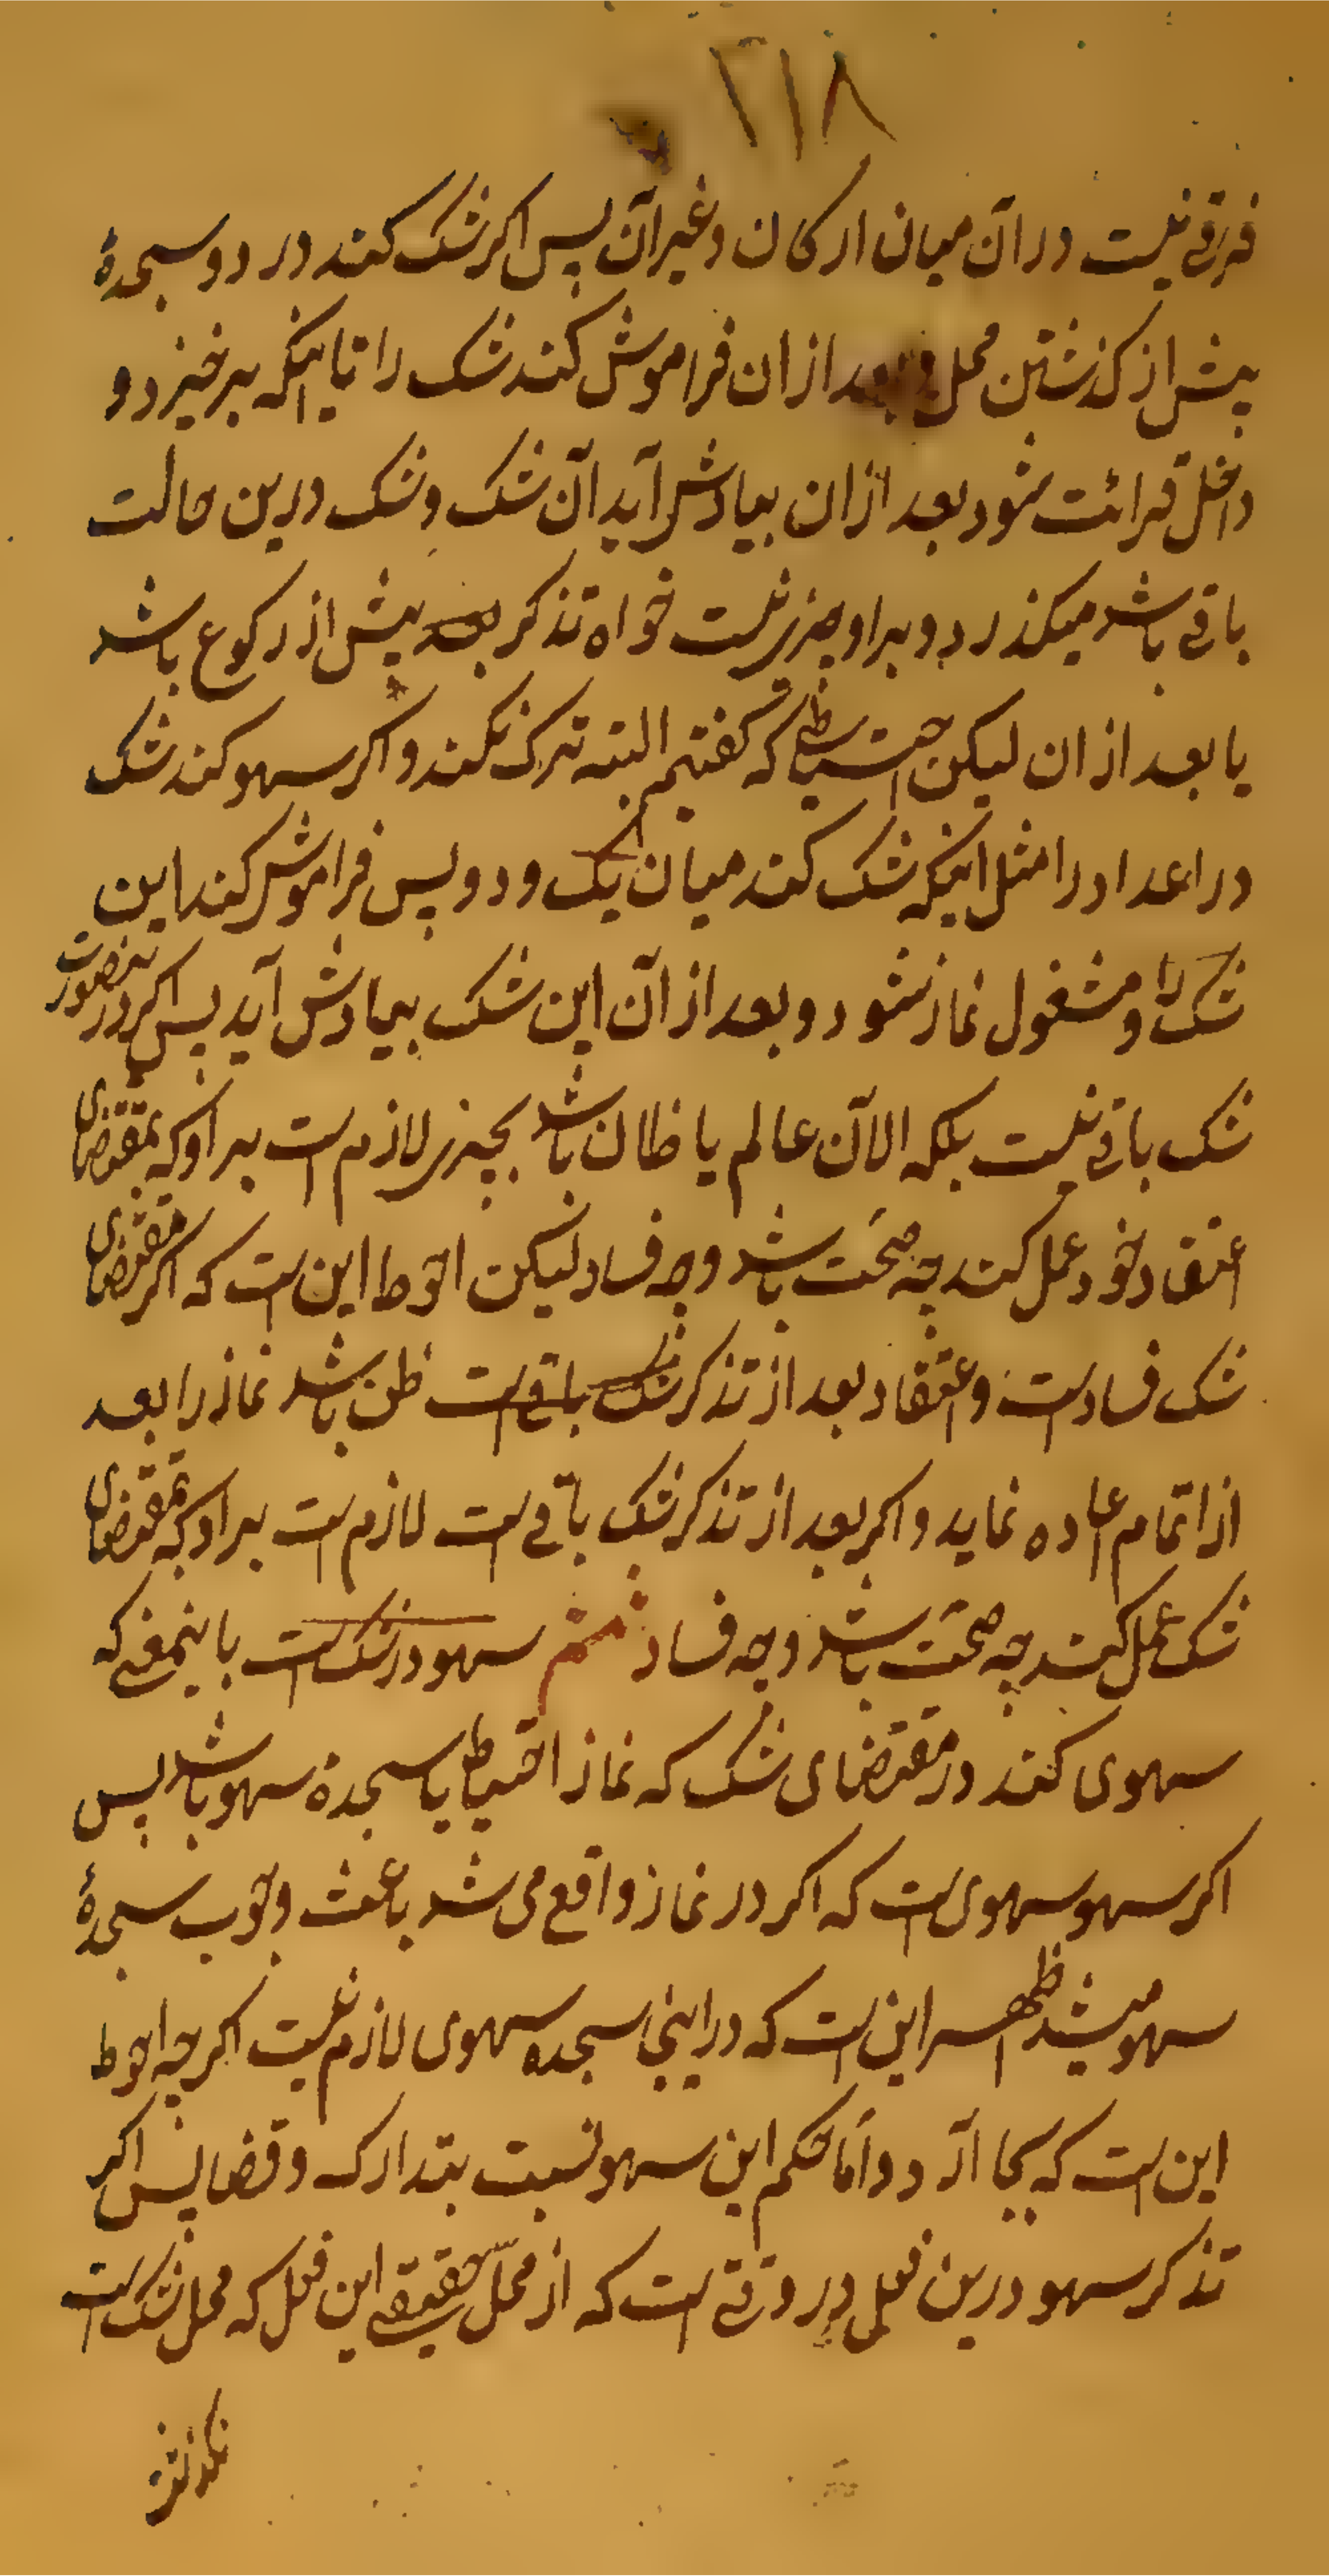 ۲۱۸
فرقی نیست در آن میان ارکان و غیر آن پس اکر شک کند در دو سجدهٔ
پیش از کذشتن محل و بعد از ان فراموش کند شک را تا اینکه برخیزد و
داخل قرائت شود بعد از ان بیادش آید آن شک و شک درین حالت
باقی باشد میکذرد و بر او چیزی نیست خواه تذکر بعد پیش از رکوع باشد
یا بعد از ان لیکن احتیاطی که کفتیم البته ترک نکند و اکر سهو کند شک
در اعداد را مثل اینکه شک کند میان یک و دو پس فراموش کند این
شک را و مشغول نماز شود و بعد از آن این شک بیادش آید پس اکر درینصورت
شک باقی نیست بلکه الآن عالم یا ظان باشد بچیزی لازم است بر او که بمقتضای
اعتقاد خود عمل کند چه صحّت باشد و چه فساد لیکن احوط این است که اکر مقتضای
شک فساد است و اعتقاد بعد از تذکر شک باقی است ظن باشد نماز را بعد
از اتمام اعاده نماید و اکر بعد از تذکر شک باقی است لازم است بر او که بمقتضای
شک عمل کند چه صحّت باشد و چه فساد ششم سهو در شک است باینمعنی که
سهوی کند در مقتضای شک که نماز احتیاط یا سجدهٔ سهو باشد پس
اکر سهو سهوی است که اکر در نماز واقع می شد باعث وجوب سجدهٔ
سهو میشد اظهر این است که در اینجا سجده سهوی لازم نیست اکرچه احوط
این است که بجا آرد و امّا حکم این سهو نسبت بتدارک و قضا پس اکر
تذکر سهو درین فعل در وقتی است که از محلّ حقیقی این فعل که محل شک است
نکذشته